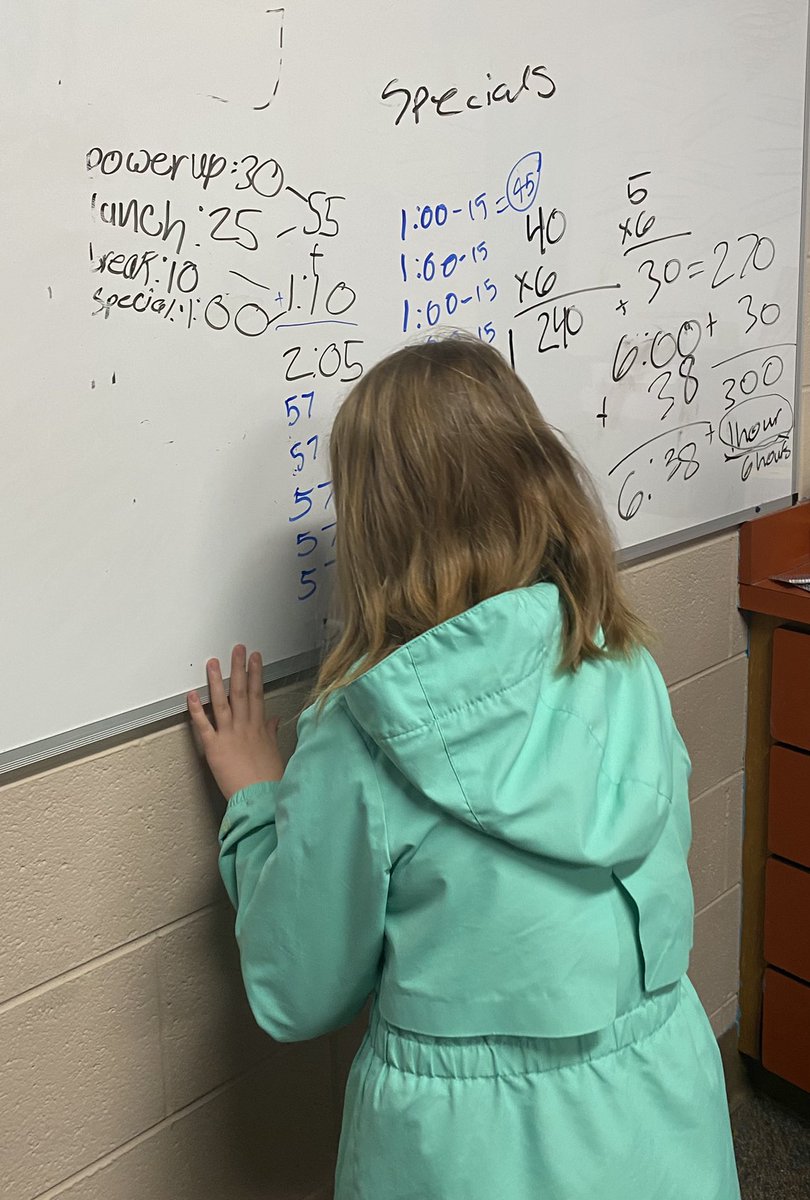 Specials
powerup:30
lunch:25 - 55
+
break:10
special:1:00
+1:10
2:05
57
57
57
57
57
1:00-15=45
1:00-15
1:00-15
-15
40
x6
240
5
x6
+ 30=270
+ 30
300
+ 1hour
6hours
6:00
+ 38
6:38